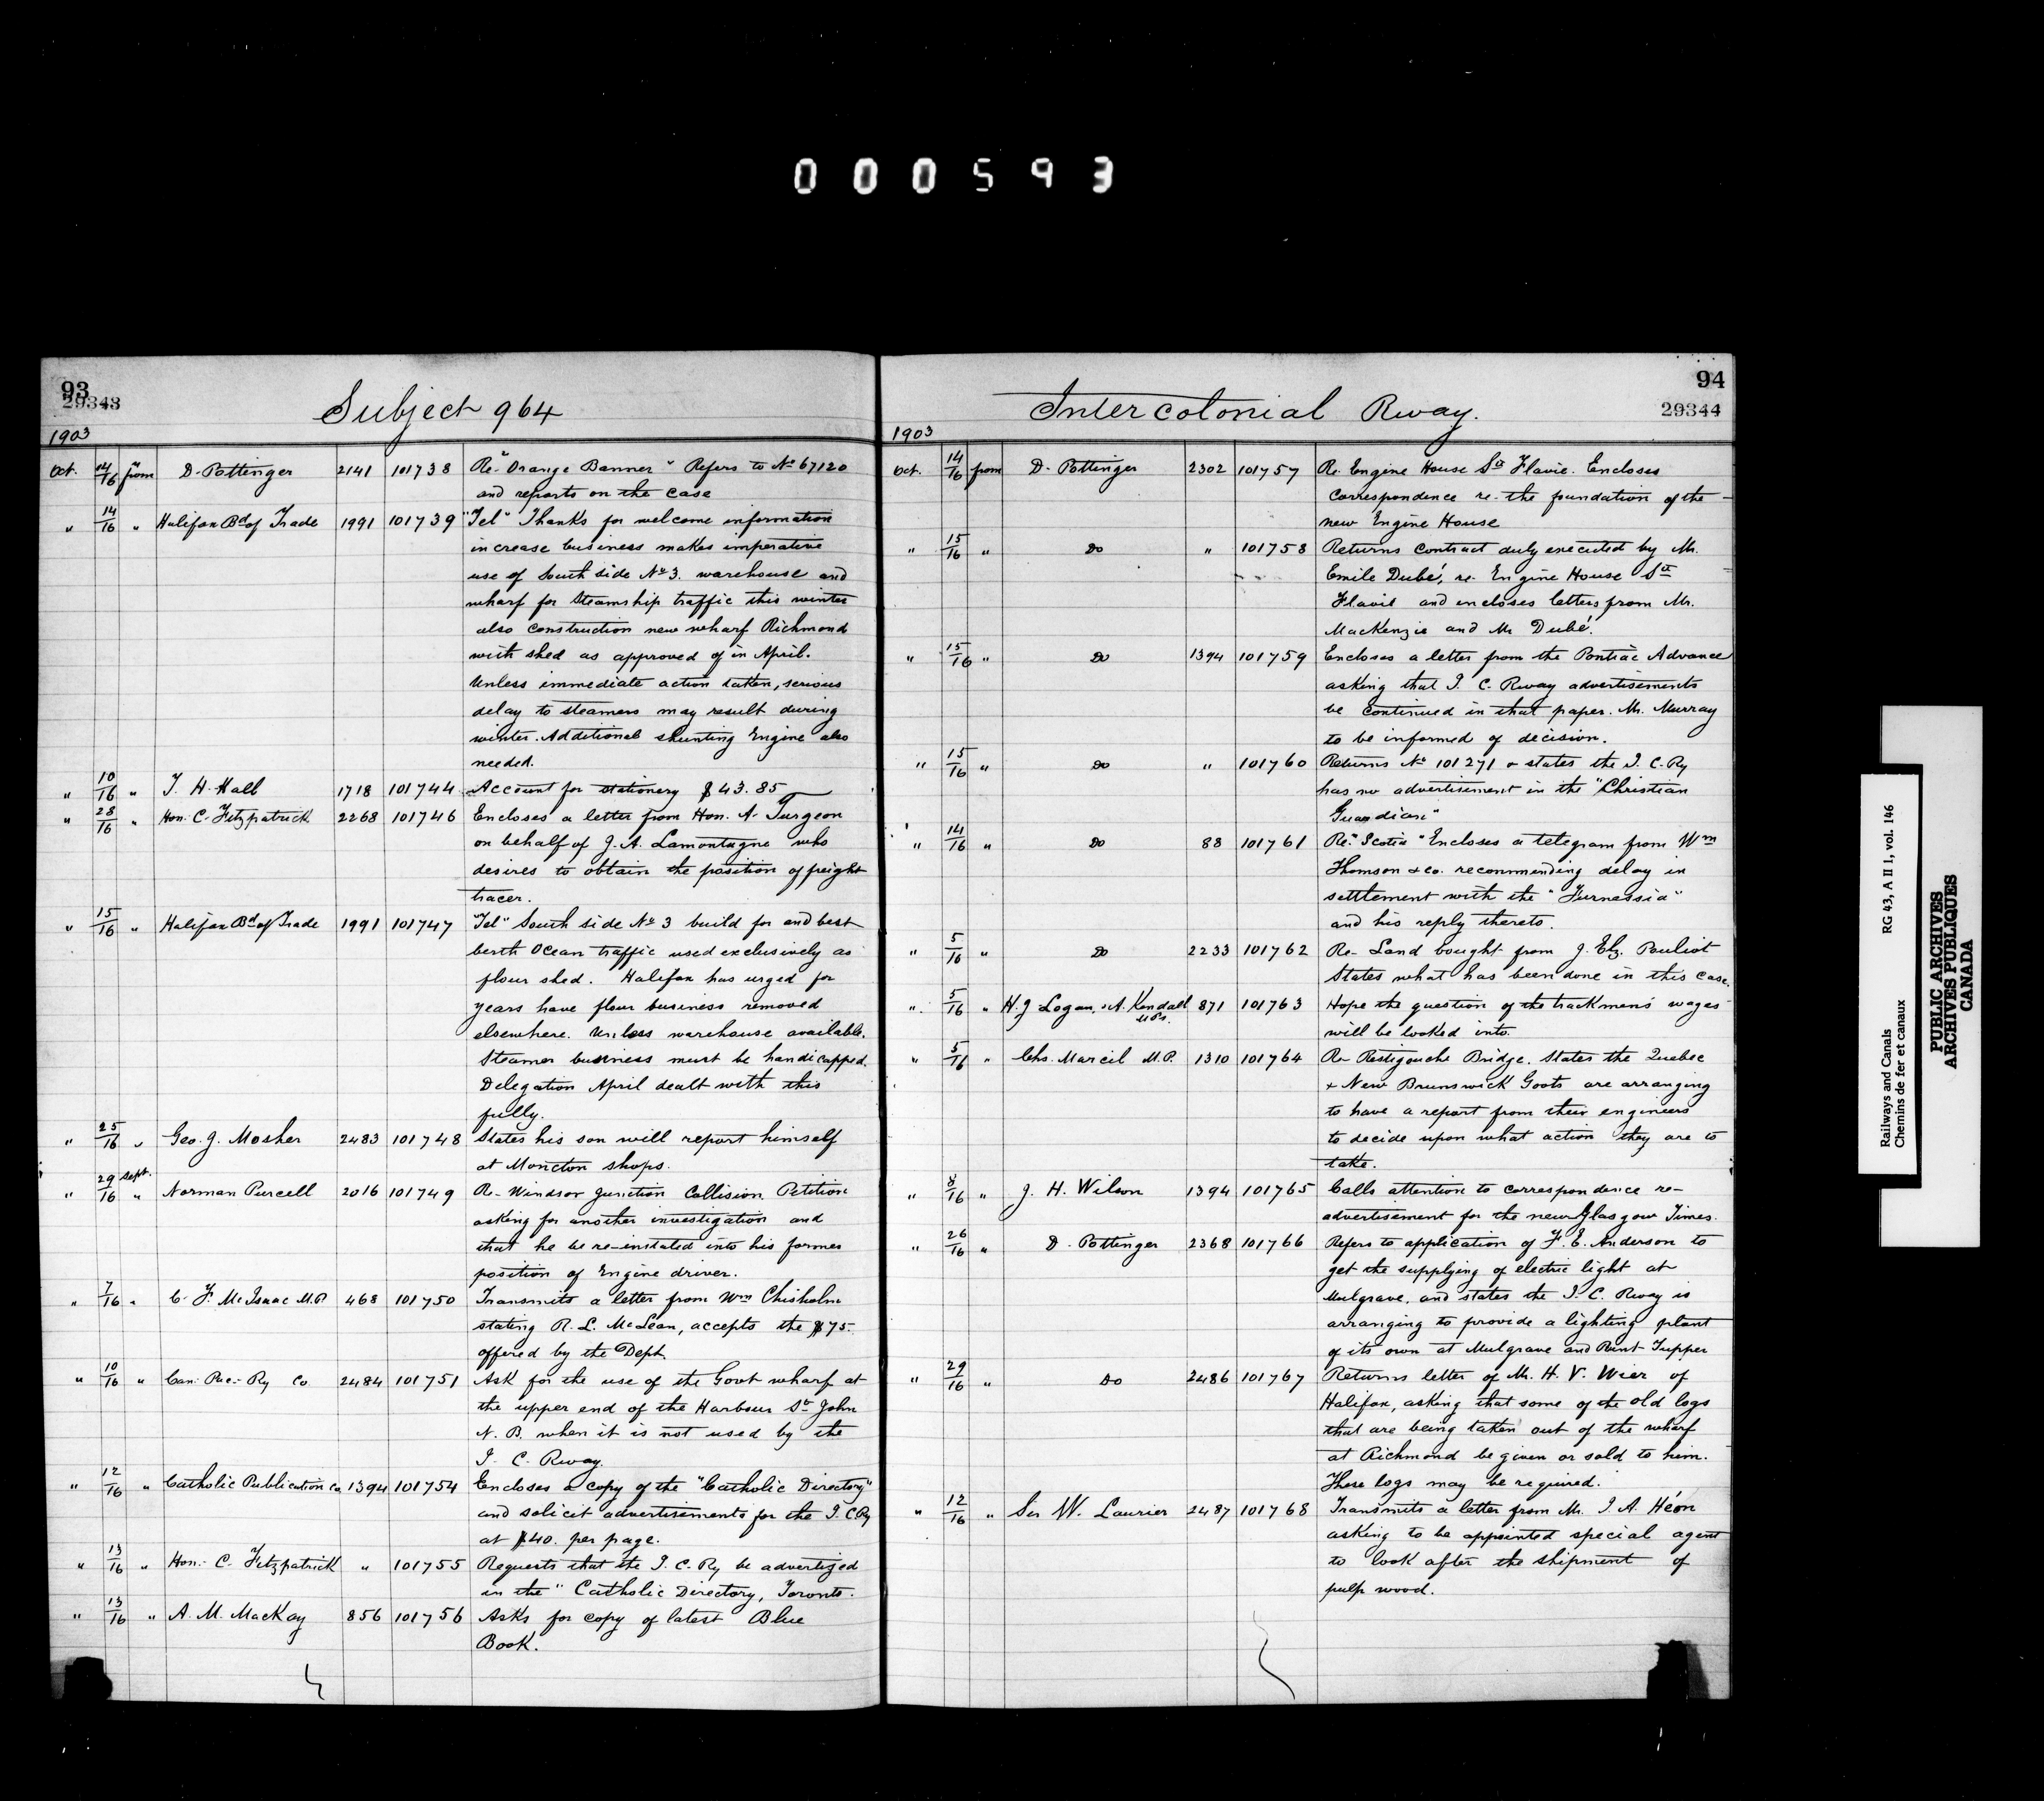 000593
93
29343
Subject 964
1903
Oct. 14/16 from D. Pottinger 2141 101738 Re "Orange Banner" Refers to No 67120
and reports on the case
" 14/16 " Halifax Bd of Trade 1991 101739 "Tel" Thanks for welcome information
increase business makes imperative
use of South side No 3. warehouse and
wharf for Steamship traffic this winter
also construction new wharf Richmond
with shed as approved of in April.
Unless immediate action taken, serious
delay to steamers may result during
winter. Additional shunting Engine also
needed.
" 10/16 " T. H. Hall 1718 101744 Account for stationery $43.85
" 28/16 " Hon. C. Fitzpatrick 2268 101746 Encloses a letter from Hon. A. Turgeon
on behalf of J. A. Lamontagne who
desires to obtain the position of freight
tracer.
" 15/16 " Halifax Bd of Trade 1991 101747 "Tel" South side No 3 build for and best
berth Ocean traffic used exclusively as
flour shed. Halifax has urged for
years have flour business removed
elsewhere. Unless warehouse available.
Steamer business must be handicapped.
Delegation April dealt with this
fully.
" 25/16 " Geo. J. Mosher 2483 101748 States his son will report himself
at Moncton shops.
" 29/16 Sept. " Norman Purcell 2016 101749 Re- Windsor Junction Collision Petition
asking for another investigation and
that he be re-instated into his former
position of Engine driver.
" 7/16 " C. F. McIsaac M.P. 468 101750 Transmits a letter from Wm Chisholm
stating R. L. McLean, accepts the $75.
offered by the Dept.
" 10/16 " Can. Pac. Ry Co 2484 101751 Ask for the use of the Govt wharf at
the upper end of the Harbour St John
N. B. when it is not used by the
I. C. Rway.
" 12/16 " Catholic Publication Co 1394 101754 Encloses a copy of the "Catholic Directory"
and solicit advertisements for the I.C.Ry
at $40. per page.
" 13/16 " Hon. C. Fitzpatrick " 101755 Requests that the I. C. Ry be advertized
in the "Catholic Directory, Toronto.
" 13/16 " A. M. MacKay 856 101756 Asks for copy of latest Blue
Book.
94
29344
Intercolonial Rway.
1903
Oct. 14/16 from D. Pottinger 2302 101757 Re. Engine House Ste Flavie. Encloses
correspondence re- the foundation of the
new Engine House
" 15/16 " Do " 101758 Returns contract duly executed by Mr.
Emile Dubé, re- Engine House Ste
Flavie and encloses letters from Mr.
MacKenzie and Mr Dubé.
" 15/16 " Do 1394 101759 Encloses a letter from the Pontiac Advance
asking that I. C. Rway advertisements
be continued in that paper. Mr. Murray
to be informed of decision.
" 15/16 " Do " 101760 Returns No 101271 & states the I. C. Ry
has no advertisement in the "Christian
Guardian"
" 14/16 " Do 88 101761 Re "Scotia" Encloses a telegram from Wm
Thomson & co. recommending delay in
settlement with the "Furnessia"
and his reply thereto.
" 5/16 " Do 2233 101762 Re- Land bought from J. Elz. Pouliot
States what has been done in this case.
" 5/16 " H. J. Logan, & A. Kendall M.Ps. 871 101763 Hope the question of the trackmen's wages
will be looked into.
" 5/16 " Chs. Marcil M.P. 1310 101764 Re- Restigouche Bridge. States the Quebec
& New Brunswick Govts are arranging
to have a report from their engineers
to decide upon what action they are to
take.
" 8/16 " J. H. Wilson 1394 101765 Calls attention to correspondence re-
advertisement for the new Glasgow Times.
" 26/16 " D. Pottinger 2368 101766 Refers to application of F. E. Anderson to
get the supplying of electric light at
Mulgrave. and states the I. C. Rway is
arranging to provide a lighting plant
of its own at Mulgrave and Point Tupper
" 29/16 " Do 2486 101767 Returns letter of Mr. H. V. Wier of
Halifax, asking that some of the old logs
that are being taken out of the wharf
at Richmond be given or sold to him.
These logs may be required.
" 12/16 " Sir W. Laurier 2487 101768 Transmits a letter from Mr. J A. Héon
asking to be appointed special agent
to look after the shipment of
pulp wood.
Railways and Canals RG 43, A II 1, vol. 146
Chemins de fer et canaux
PUBLIC ARCHIVES
ARCHIVES PUBLIQUES
CANADA